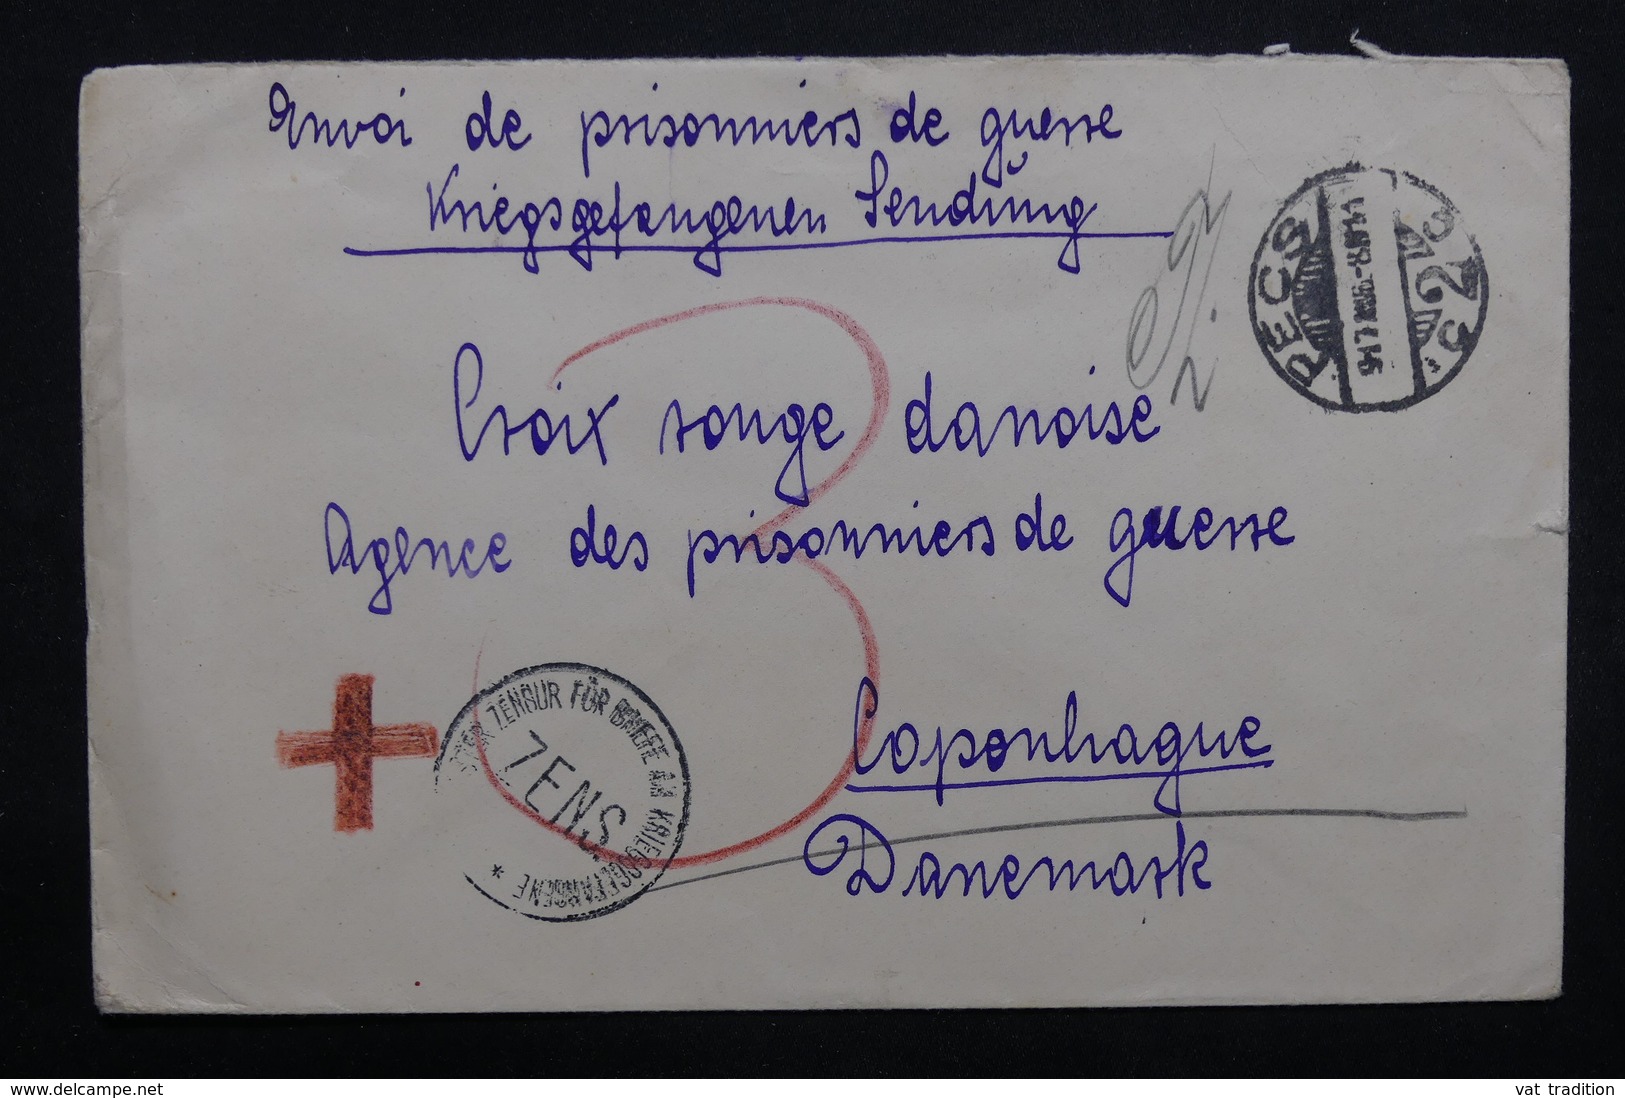 Envoi de prisonniers de guerre
Kriegsgefangenen Sendung
PECS
Croix rouge danoise
Agence des prisonniers de guerre
3
ZENSUR FÜR BRIEFE AN KRIEGSGEFANGENE *
ZENS
Copenhague
Danemark
www.delcampe.net
vat tradition